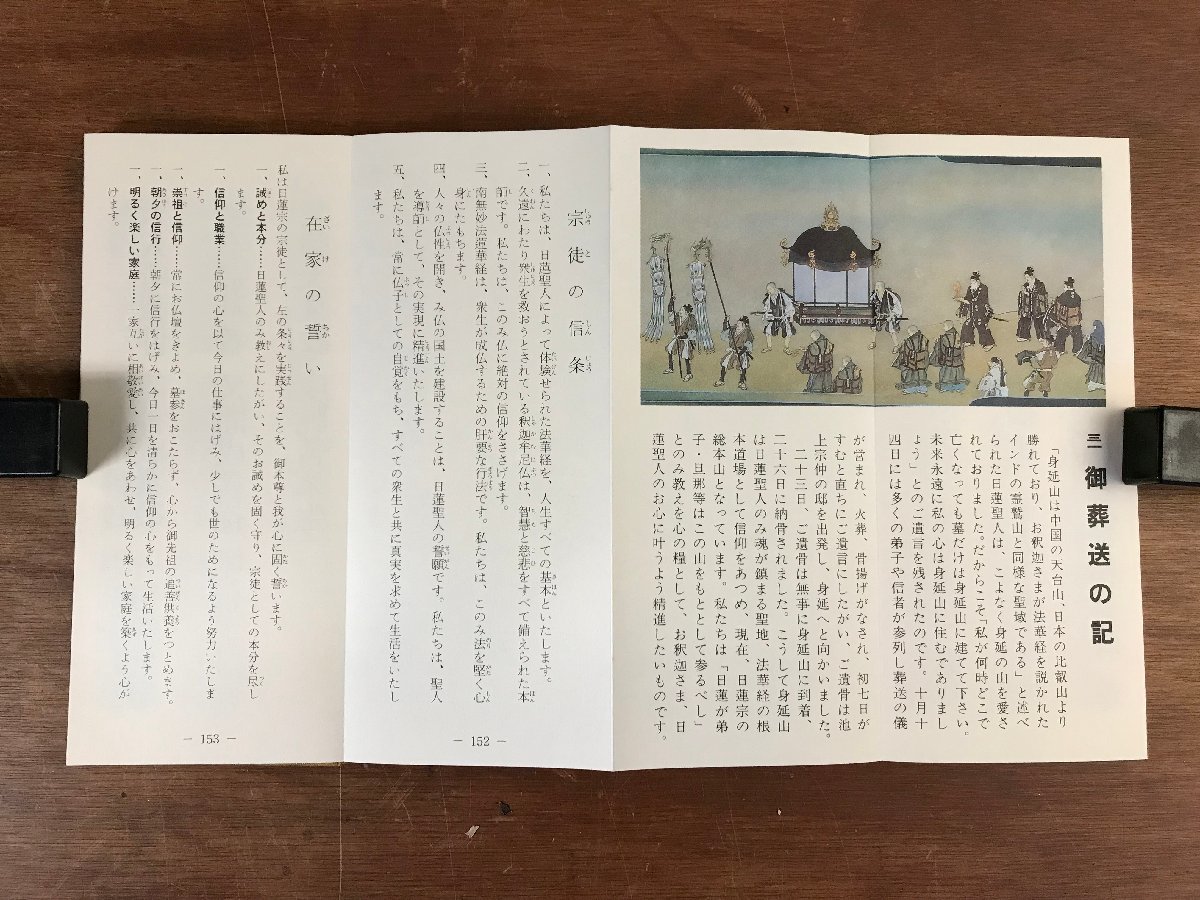 三一 御葬送の記
「身延山は中国の天台山、日本の比叡山より
勝れており、お釈迦さまが法華経を説かれた
インドの霊鷲山と同様な聖域である」と述べ
られた日蓮聖人は、こよなく身延の山を愛さ
れておりました。だからこそ「私が何時どこで
亡くなっても墓だけは身延山に建てて下さい。
未来永遠に私の心は身延山に住むでありまし
ょう」とのご遺言を残されたのです。十月十
四日には多くの弟子や信者が参列し葬送の儀
が営まれ、火葬、骨揚げがなされ、初七日が
すむと直ちにご遺言にしたがい、ご遺骨は池
上宗仲の邸を出発し、身延へと向かいました。
二十三日、ご遺骨は無事に身延山に到着、
二十六日に納骨されました。こうして身延山
は日蓮聖人のみ魂が鎮まる聖地、法華経の根
本道場として信仰をあつめ、現在、日蓮宗の
総本山となっています。私たちは「日蓮が弟
子・旦那等はこの山をもととして参るべし」
とのみ教えを心の糧として、お釈迦さま、日
蓮聖人のお心に叶うよう精進したいものです。
宗徒の信条
一、私たちは、日蓮聖人によって体験せられた法華経を、人生すべての基本といたします。
二、久遠にわたり衆生を救おうとされている釈迦牟尼仏は、智慧と慈悲をすべて備えられた本
師です。私たちは、このみ仏に絶対の信仰をささげます。
三、南無妙法蓮華経は、衆生が成仏するための肝要な行法です。私たちは、このみ法を堅く心
身にたもちます。
四、人々の仏性を開き、み仏の国土を建設することは、日蓮聖人の誓願です。私たちは、聖人
を導師として、その実現に精進いたします。
五、私たちは、常に仏子としての自覚をもち、すべての衆生と共に真実を求めて生活をいたし
ます。
― 152 ―
在家の誓い
私は日蓮宗の宗徒として、左の条々を実践することを、御本尊と我が心に固く誓います。
一、誡めと本分……日蓮聖人のみ教えにしたがい、そのお誡めを固く守り、宗徒としての本分を尽し
ます。
一、信仰と職業……信仰の心を以て今日の仕事にはげみ、少しでも世のためになるよう努力いたしま
す。
一、崇祖と信仰……常にお仏壇をきよめ、墓参をおこたらず、心から御先祖の追善供養をつとめます。
一、朝夕の信行……朝夕に信行をはげみ、今日一日を清らかに信仰の心をもって生活いたします。
一、明るく楽しい家庭……一家互いに相敬愛し、共に心をあわせ、明るく楽しい家庭を築くよう心が
けます。
― 153 ―